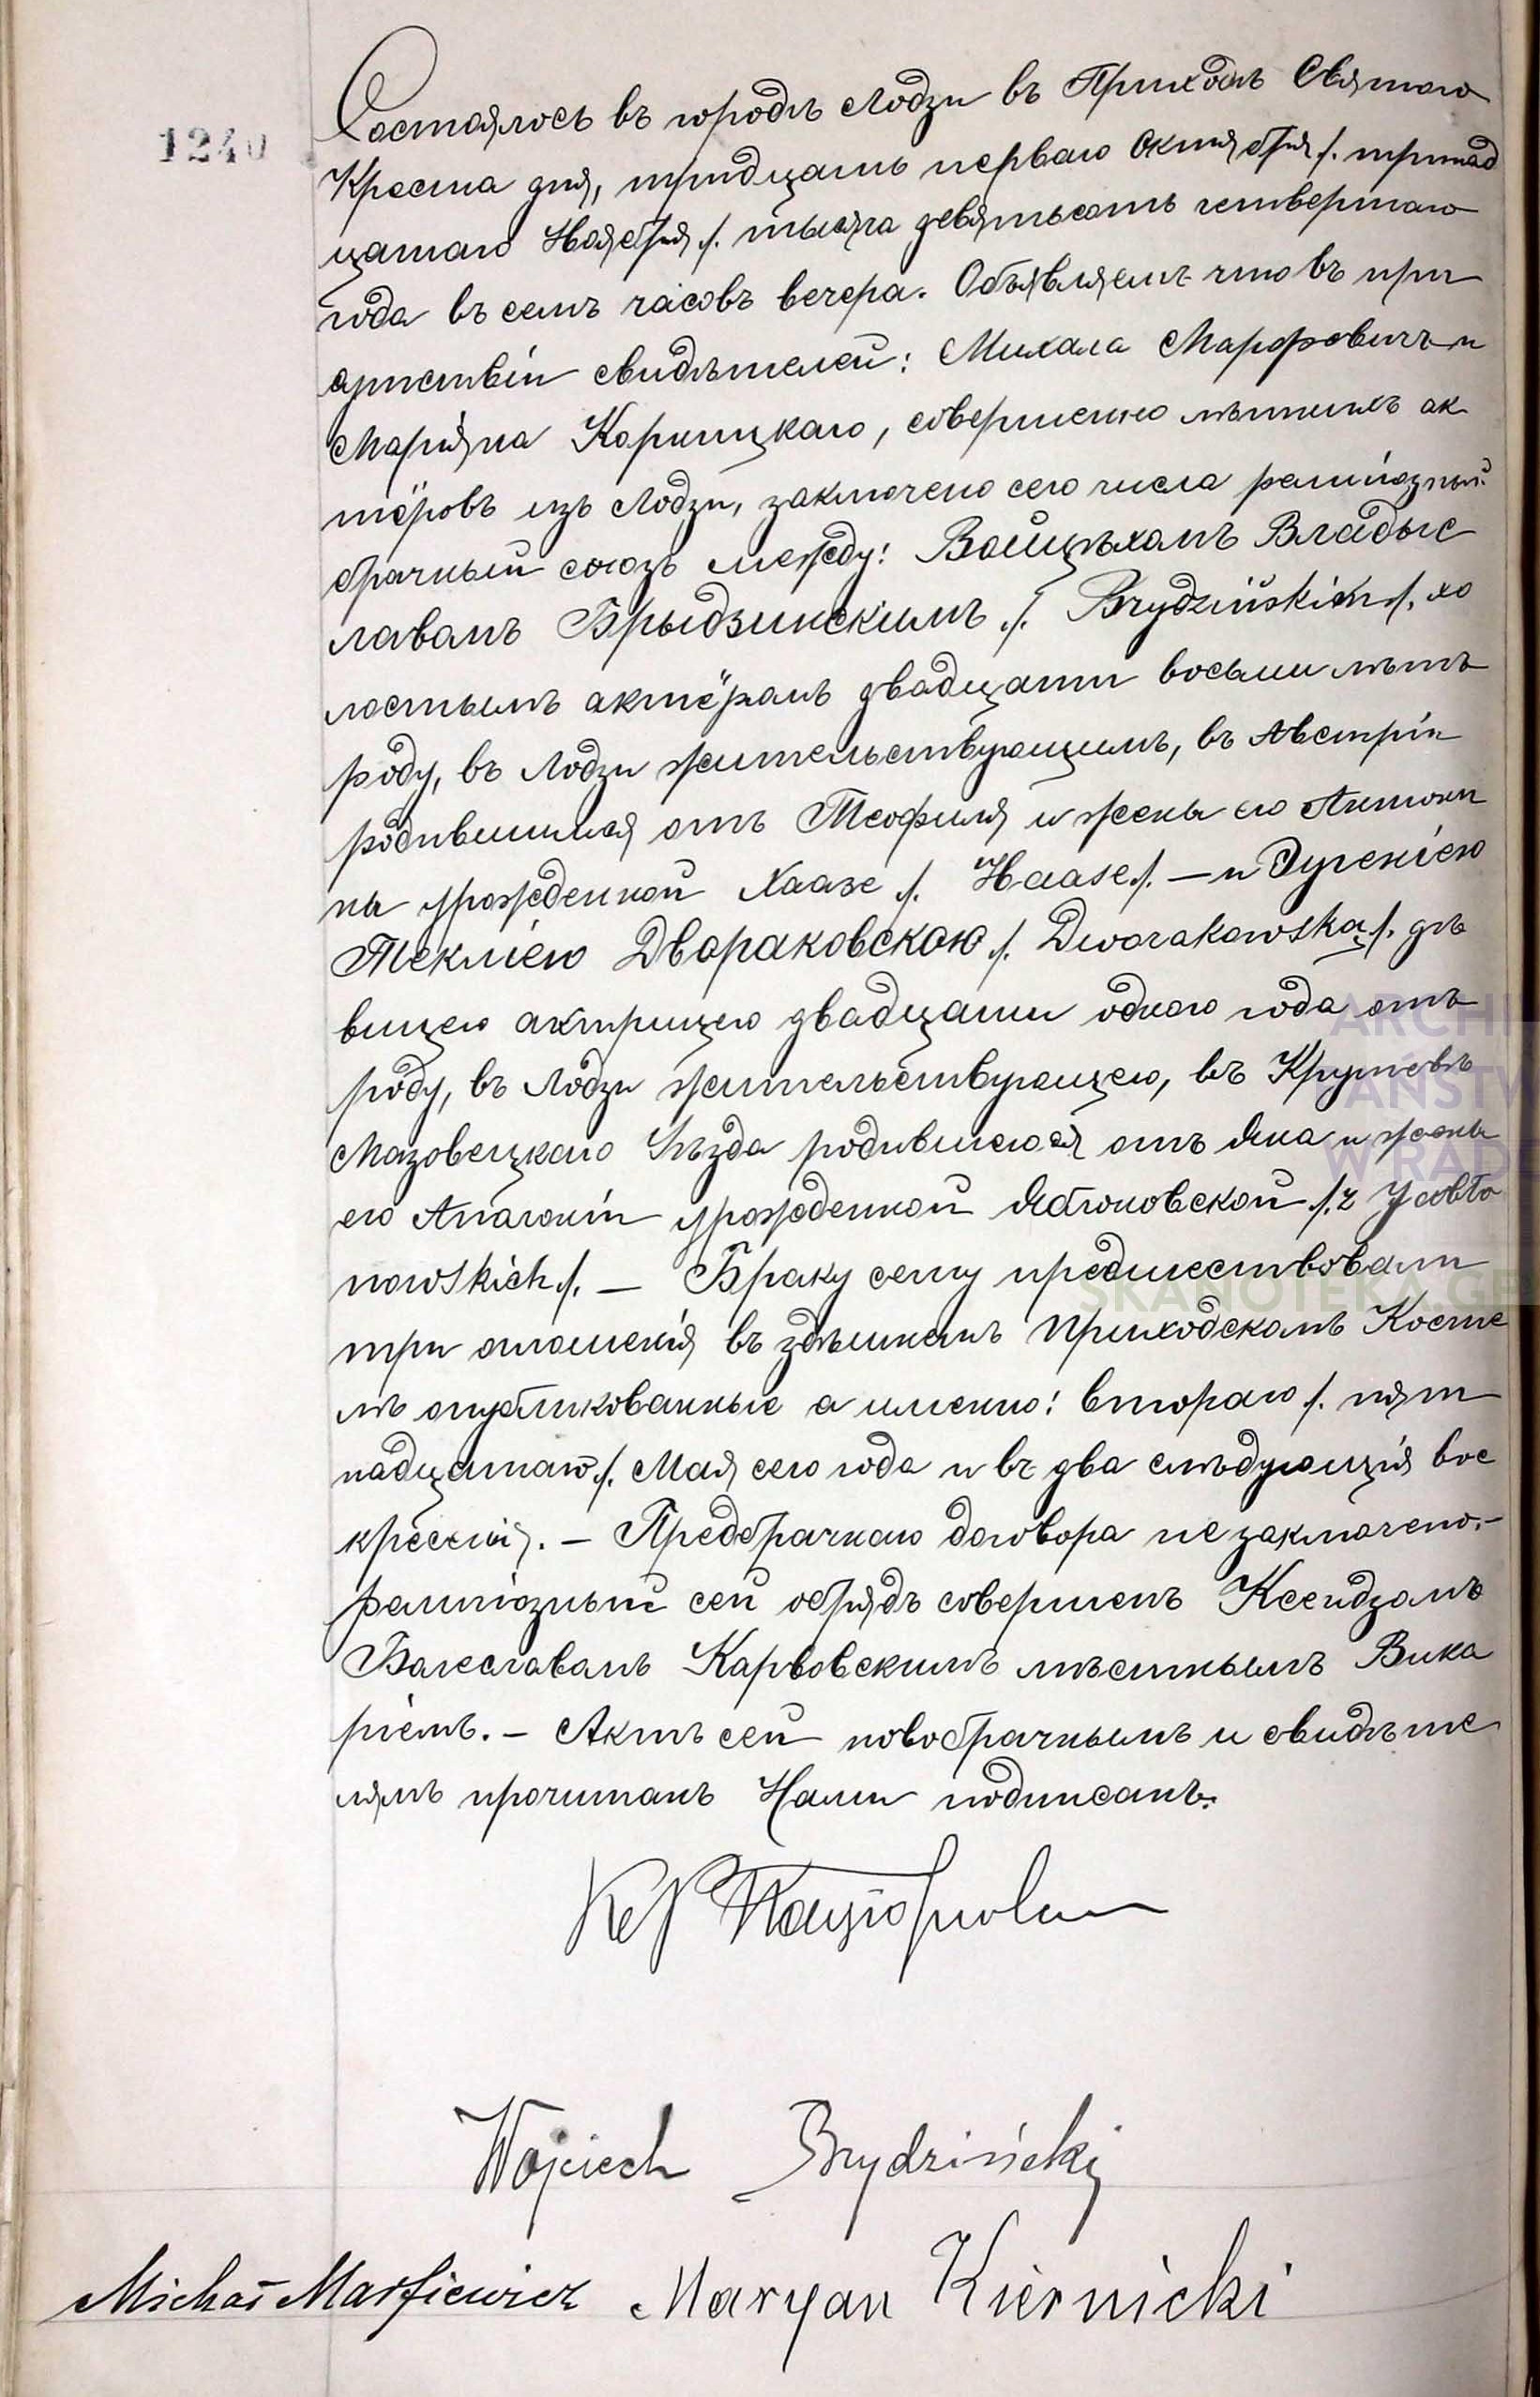 1240
Состоялось въ городѣ Лодзи въ Приходѣ Святого
Креста дня, тридцать перваго Октября /. тринад
цатаго Ноября /. тысяча девятьсотъ четвертаго
года въ семь часовъ вечера. Объявляемъ что въ при
сутствіи свидѣтелей: Михала Марфевичъ и
Маріяна Корницкаго, совершенно лѣтнихъ ак
тёровъ изъ Лодзи, заключено сего числа религіозный
брачный союзъ между: Войцѣхомъ Владыс
лавомъ Брыдзинскимъ /. Brydzińskim /. хо
лостымъ актёромъ двадцати восьми лѣтъ
роду, въ Лодзи жительствующимъ, въ Австріи
родившимся отъ Теофиля и жены его Антони
ны урожденной Хаазе /. Haase /. — и Эугеніею
Теклiею Двораковскою /. Dworakowską /. дѣ
вицею актрицею двадцати одного года отъ
роду, въ Лодзи жительствующею, въ
Мазовецкаго Уѣзда родившеюся отъ Яна и жены
его Аполоніи урожденной Яблоновской /. z Jabło
nowskich /. — Браку сему предшествовали
три оглашенія въ здѣшнемъ Приходскомъ Косте
лѣ опубликованные а именно: втораго /. пят
надцатаго /. Мая сего года и въ два слѣдующія вос
кресенія. — Предбрачнаго договора не заключено. —
религіозный сей обрядъ совершенъ Ксендзомъ
Болеславомъ Карвовскимъ мѣстнымъ Вика
ріемъ. — Актъ сей новобрачнымъ и свидѣте
лямъ прочитанъ Нами подписанъ.
Wojciech Brydziński
Michał Marfiewicz Maryan Kiernicki
ARCHI
PAŃSTW
W RAD
SKANOTEKA.GE